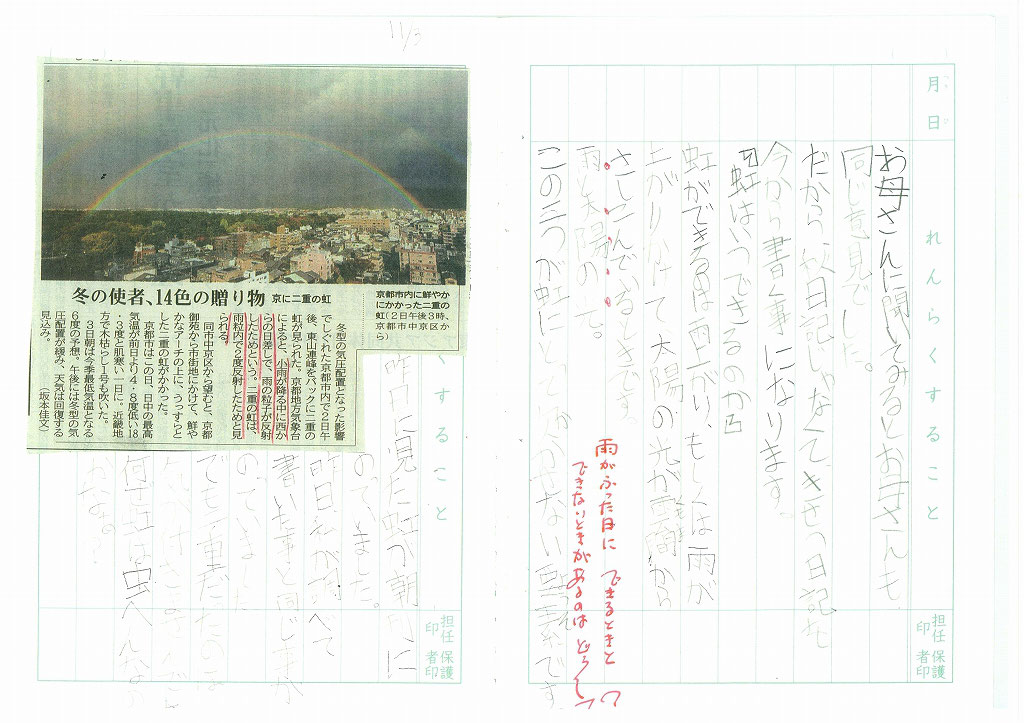 11/3
月 日
れんらくすること
担任印
保護者印
お母さんに聞いてみるとお母さんも
同じ意見でした。
だから
日記じゃなくて
日記を
今から書く事になります。
虹はいつできるのか
虹ができるのは雨上がり、もしくは雨が
上がりかけて太陽の光が雲間から
さしこんでくるときです。
雨、太陽の光。
この三つが虹に
ない要素です
雨がふった日に できるときと
できないときがあるのは どうして
冬の使者、14色の贈り物 京に二重の虹
京都市内に鮮やか
にかかった二重の
虹(2日午後3時、
京都市中京区か
ら)
冬型の気圧配置となった影響
でしぐれた京都市内で2日午
後、東山連峰をバックに二重の
虹が見られた。京都地方気象台
によると、小雨が降る中に西か
らの日差しで、雨の粒子が反射
したためという。二重の虹は、
雨粒内で2度反射したためと見
られる。
同市中京区から望むと、京都
御苑から市街地にかけて、鮮や
かなアーチの上に、うっすらと
した二重の虹がかかった。
京都市はこの日、日中の最高
気温が前日より4・8度低い18
・3度と肌寒い一日に。近畿地
方で木枯らし1号も吹いた。
3日朝は今季最低気温となる
6度の予想。午後には冬型の気
圧配置が緩み、天気は回復する
見込み。
(坂本佳文)
くすること
担任印
保護者印
昨日に見た虹が朝刊に
のっていました。
昨日私が調べて
書いた事と同じ事が
のっていました
でも二重だったのは
何で虹は虫へんな
かな。?